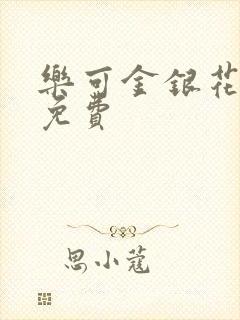 樂可金銀花
免費
思小蔻